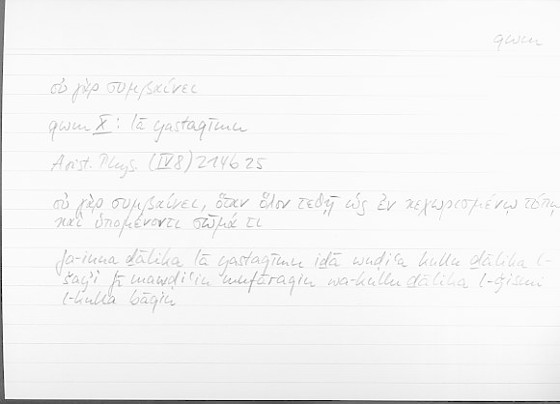 qwm
οὐ γὰρ συμβαίνει
qwm X : lā yastaqīmu
Arist. Phys. (IV 8) 214b25
οὐ γὰρ συμβαίνει, ὅταν ὅλον τεθῇ ὡς ἐν κεχωρισμένῳ τόπῳ
καὶ ὑπομένοντι σῶμά τι
fa-inna ḏālika lā yastaqīmu iḏā wuḍiʿa kullu ḏālika l-
šayʾi fī mawḍiʿin mufāraqin wa-kullu ḏālika l-ǧismi
l-kulla bāqin